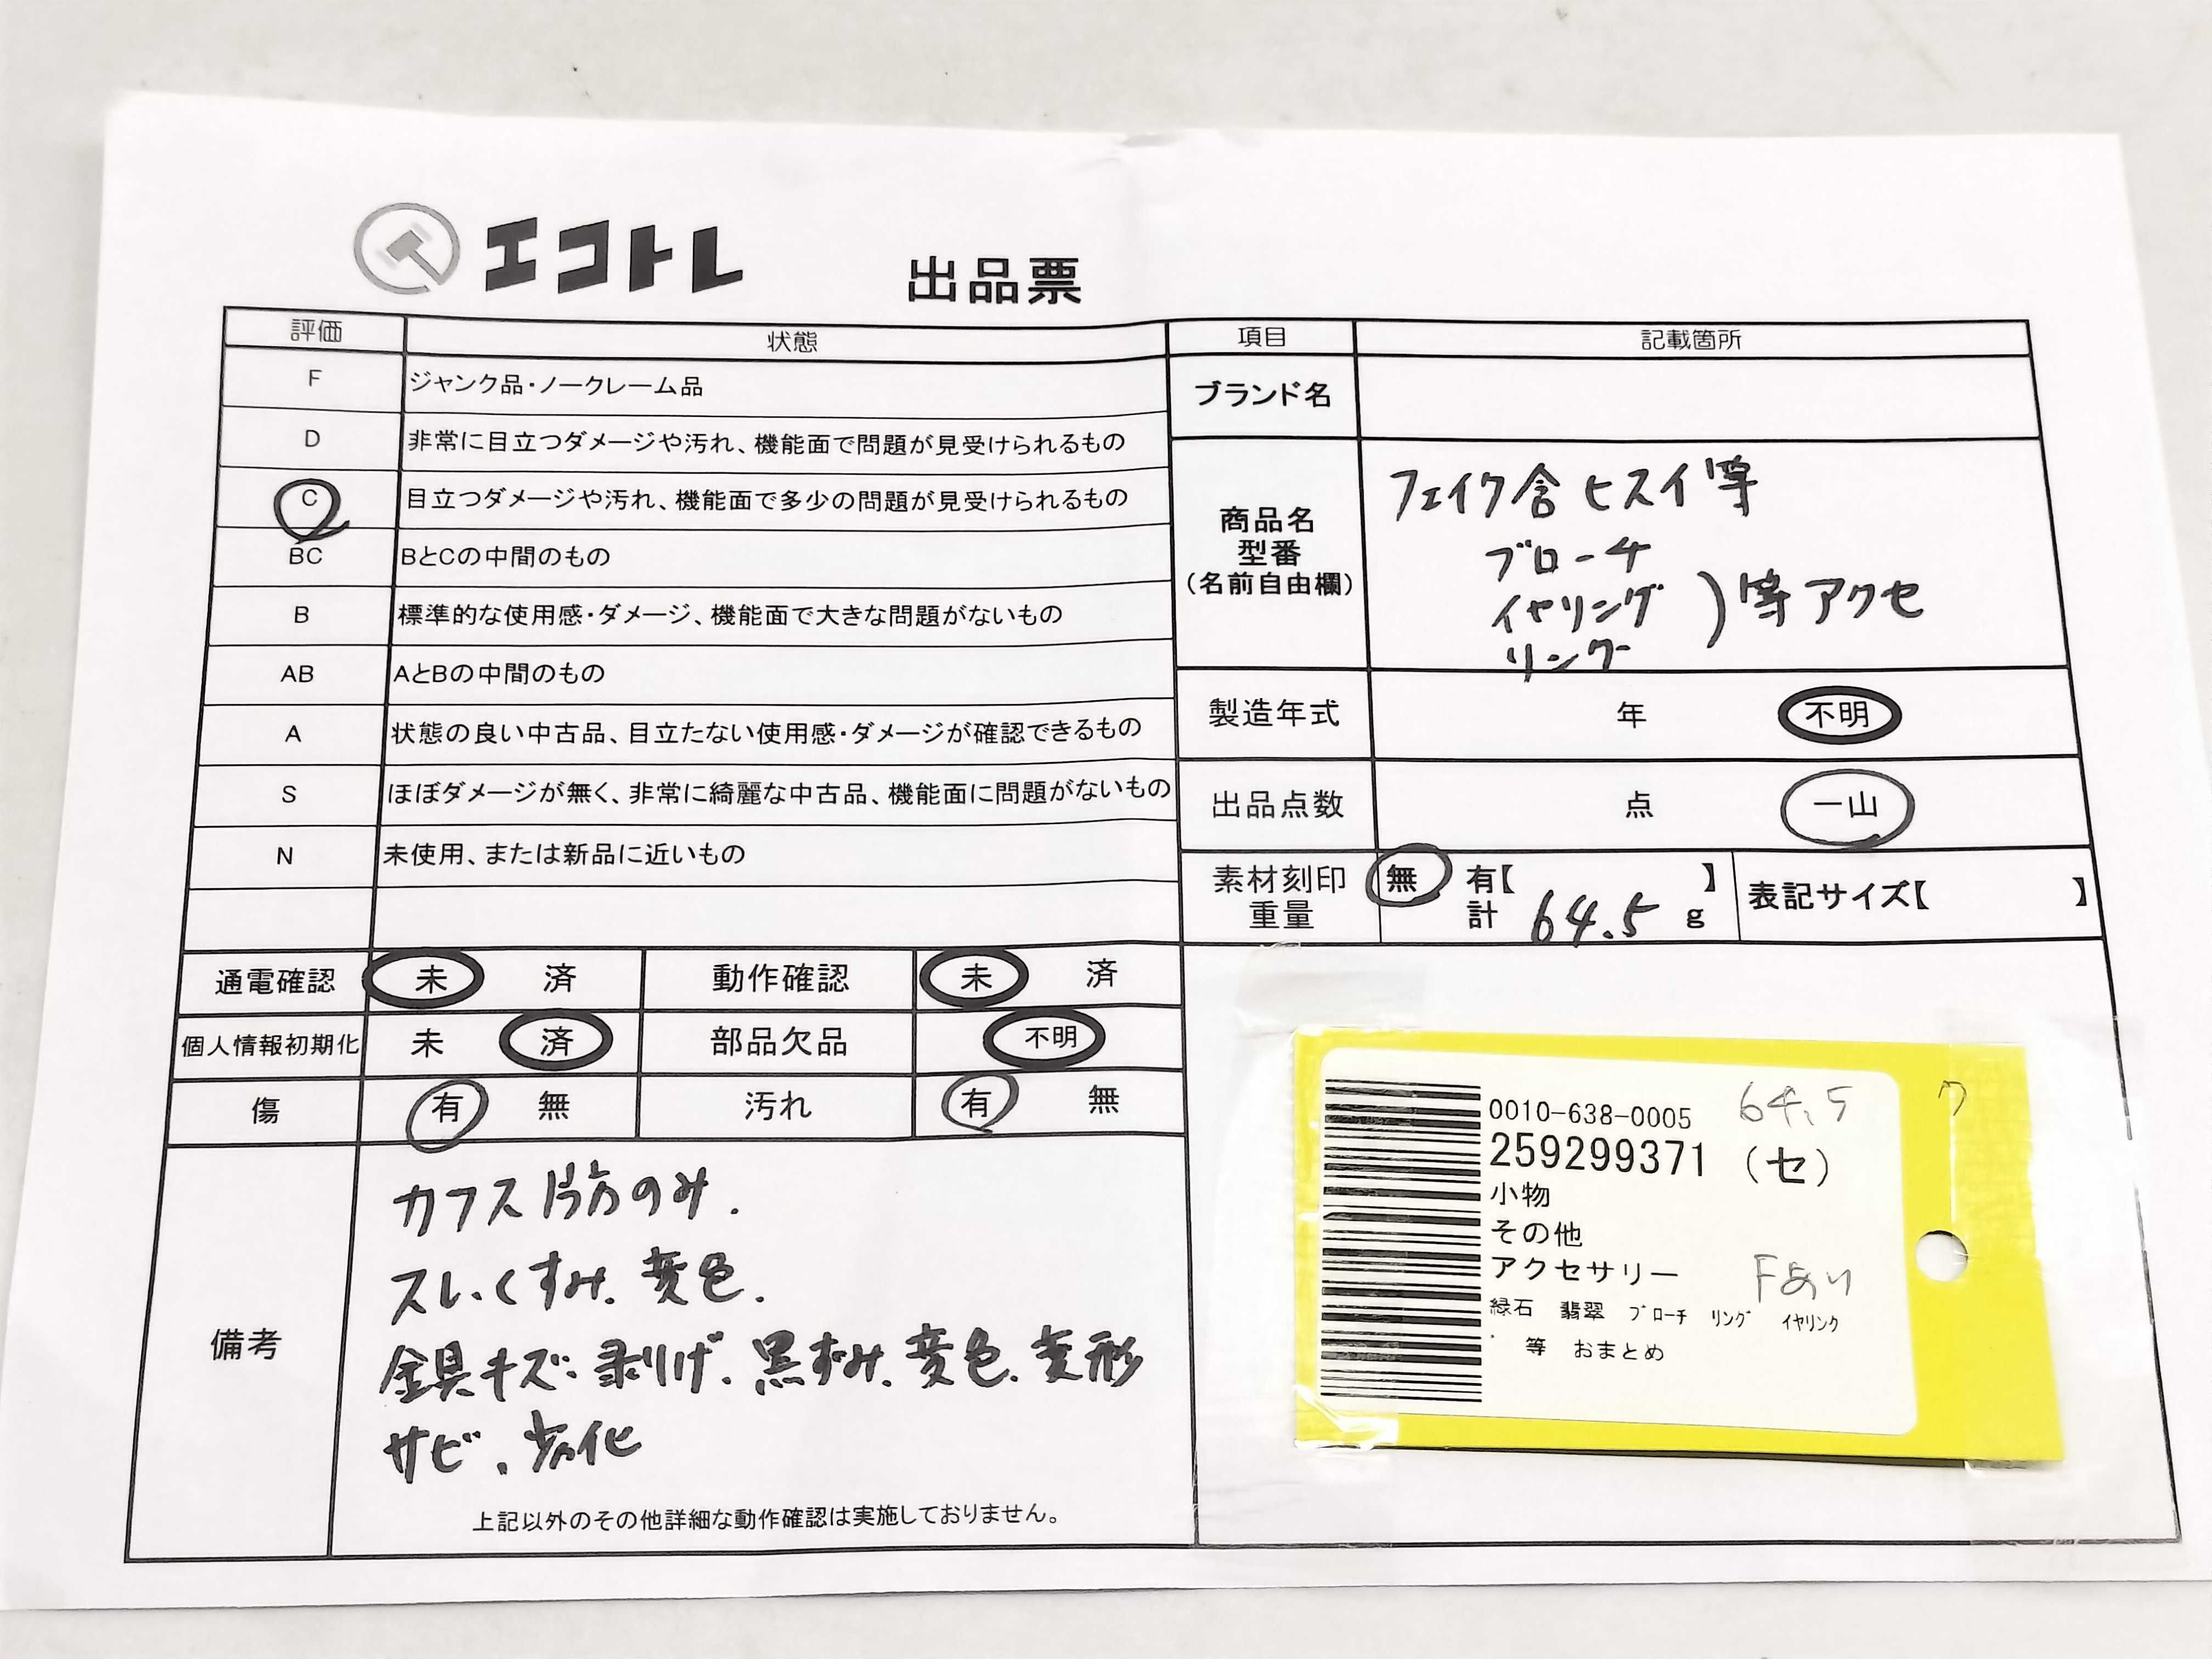 エコトレ
出品票
評価 状態
F ジャンク品・ノークレーム品
D 非常に目立つダメージや汚れ、機能面で問題が見受けられるもの
C 目立つダメージや汚れ、機能面で多少の問題が見受けられるもの
BC BとCの中間のもの
B 標準的な使用感・ダメージ、機能面で大きな問題がないもの
AB AとBの中間のもの
A 状態の良い中古品、目立たない使用感・ダメージが確認できるもの
S ほぼダメージが無く、非常に綺麗な中古品、機能面に問題がないもの
N 未使用、または新品に近いもの
通電確認 未 済 動作確認 未 済
個人情報初期化 未 済 部品欠品 不明
傷 有 無 汚れ 有 無
備考
カフス片方のみ.
スレ、くすみ、変色.
金具キズ、剥げ、黒ずみ、変色、変形
サビ、劣化
上記以外のその他詳細な動作確認は実施しておりません。
項目 記載箇所
ブランド名
商品名
型番
(名前自由欄)
フェイク含 ヒスイ等
ブローチ
イヤリング ）等アクセ
リング
製造年式 年 不明
出品点数 点 一山
素材刻印 無 有【 】
重量 計 64.5 g
表記サイズ【 】
0010-638-0005 64.5
259299371 (セ)
小物
その他
アクセサリー Fあり
緑石 翡翠 ﾌﾞﾛｰﾁ ﾘﾝｸﾞ ｲﾔﾘﾝｸ
ﾞ 等 おまとめ